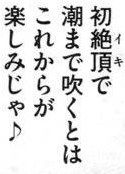 初絶頂で
潮まで吹くとは
これからが
楽しみじゃ♪
イキ